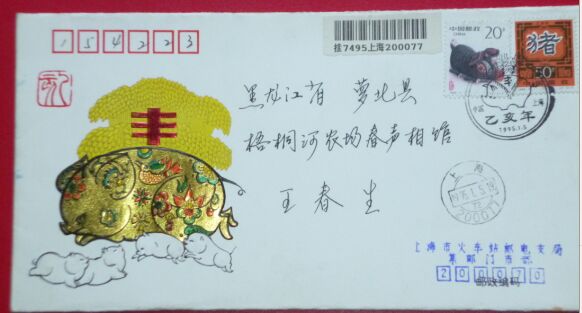 154223
挂7495上海200077
中国邮政
CHINA
20分
猪
50分
中国 上海
乙亥年
1995.1.5
丰
黑龙江省 萝北县
梧桐河农场春声相馆
王春生
上海
1995.1.5.18
20007
上海市火车站邮电支局
集邮门市部
200070
邮政编码